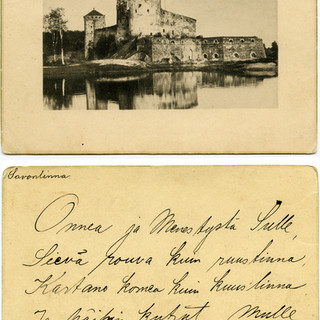 Savonlinna
Onnea ja Menestystä Sulle,
Seevä rouva kuin ruustinna,
Kartano komea kuin kuuslinna
Ja kutsut Mulle